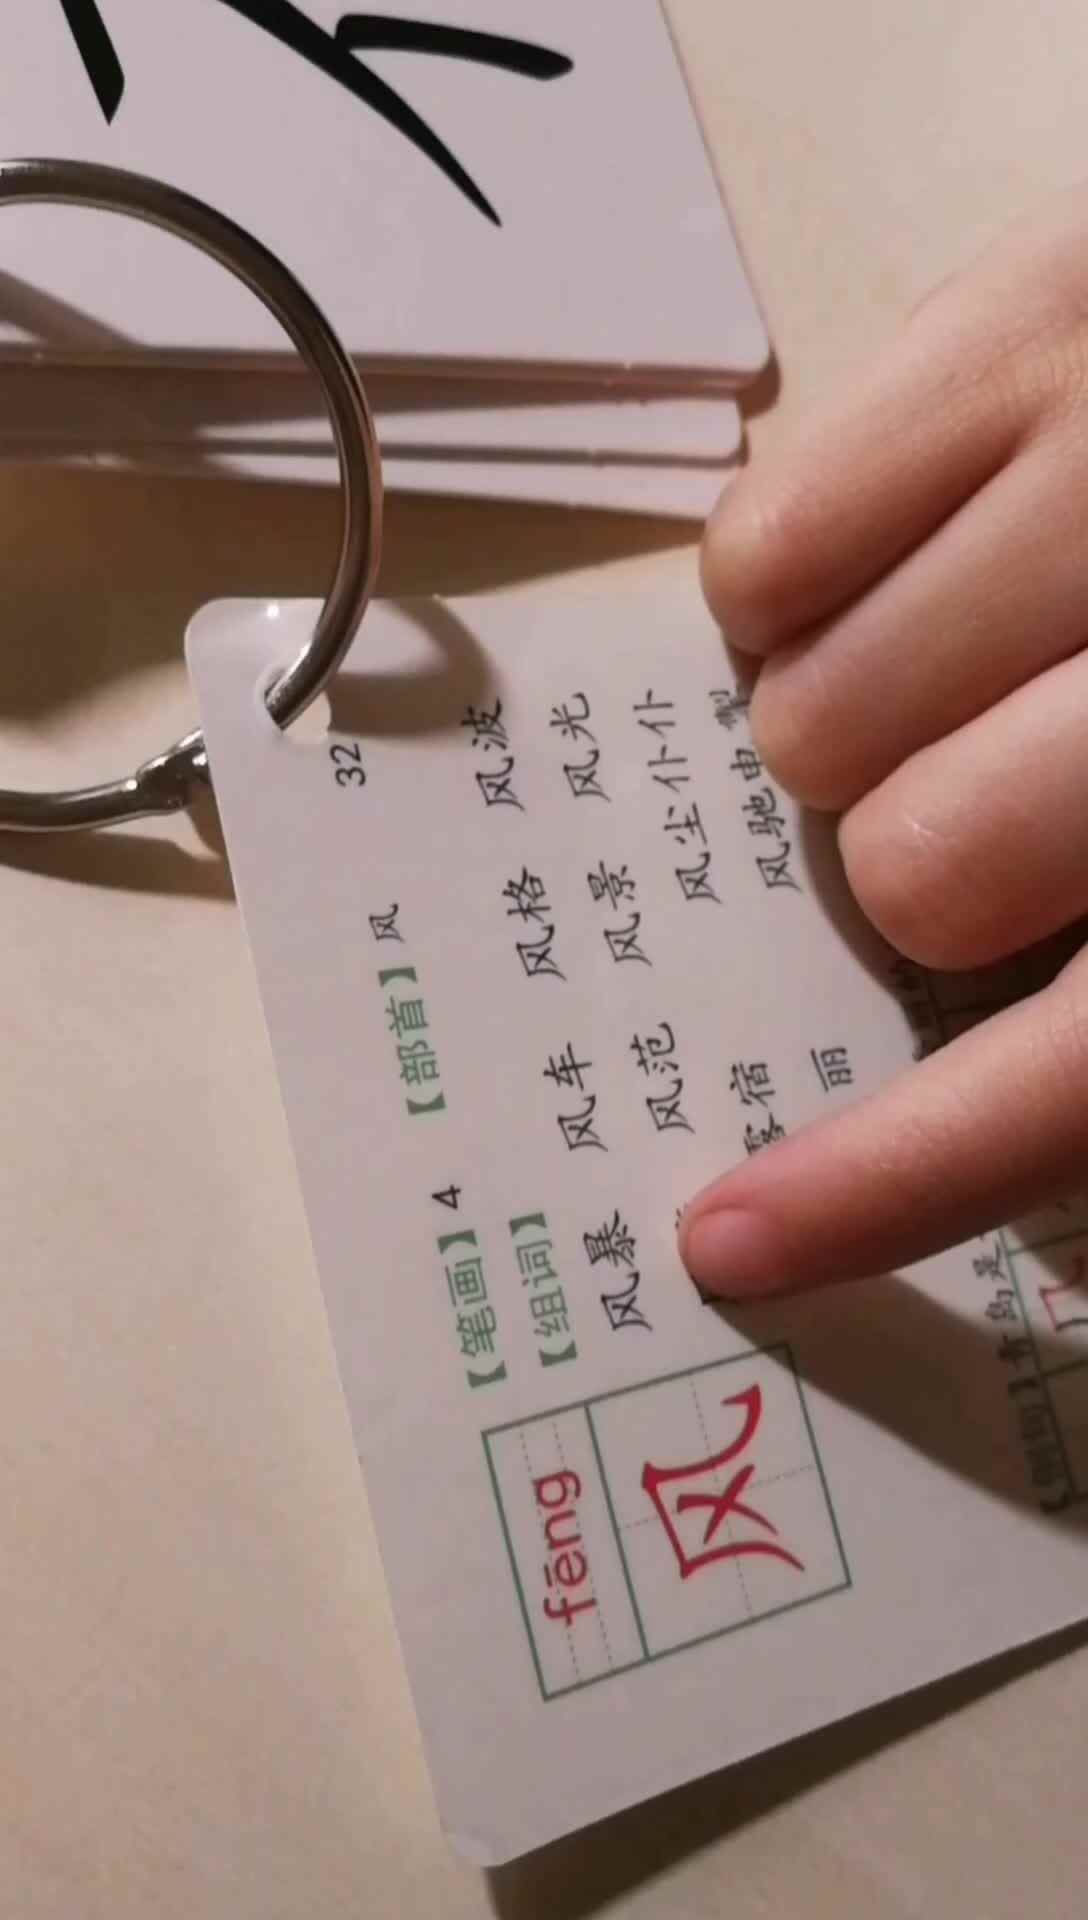 32
fēng
风
【笔画】4 【部首】风
【组词】
风暴 风车 风格 风波
风范 风景 风光
露宿 风尘仆仆
丽 风驰电掣
青岛是